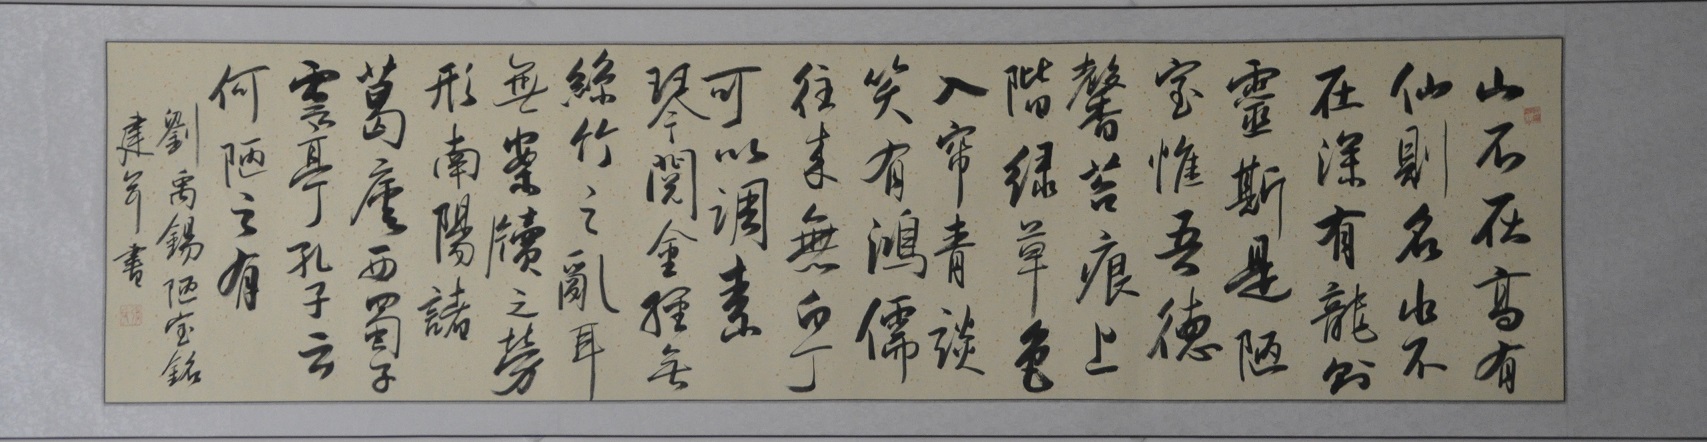 山不在高有
仙則名水不
在深有龍则
靈斯是陋
室惟吾德
馨苔痕上
階緑草色
入帘青談
笑有鴻儒
往来無白丁
可以調素
琴閱金經無
絲竹之亂耳
無案牘之勞
形南陽諸
葛廬西蜀子
雲亭孔子云
何陋之有
劉禹錫陋室銘
建書